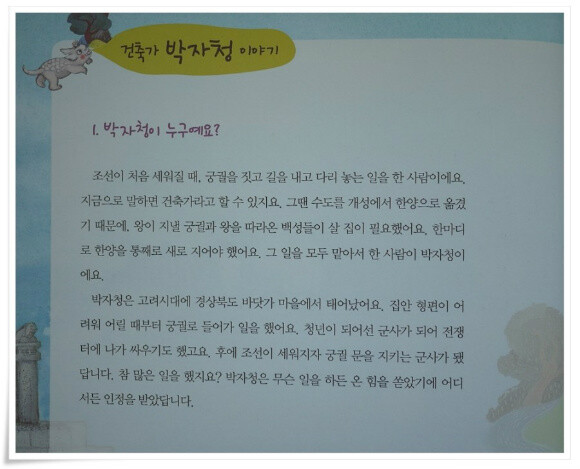 건축가 박자청 이야기
1. 박자청이 누구예요?
조선이 처음 세워질 때, 궁궐을 짓고 길을 내고 다리 놓는 일을 한 사람이에요.
지금으로 말하면 건축가라고 할 수 있지요. 그땐 수도를 개성에서 한양으로 옮겼
기 때문에, 왕이 지낼 궁궐과 왕을 따라온 백성들이 살 집이 필요했어요. 한마디
로 한양을 통째로 새로 지어야 했어요. 그 일을 모두 맡아서 한 사람이 박자청이
에요.
박자청은 고려시대에 경상북도 바닷가 마을에서 태어났어요. 집안 형편이 어
려워 어릴 때부터 궁궐로 들어가 일을 했어요. 청년이 되어선 군사가 되어 전쟁
터에 나가 싸우기도 했고요. 후에 조선이 세워지자 궁궐 문을 지키는 군사가 됐
답니다. 참 많은 일을 했지요? 박자청은 무슨 일을 하든 온 힘을 쏟았기에 어디
서든 인정을 받았답니다.